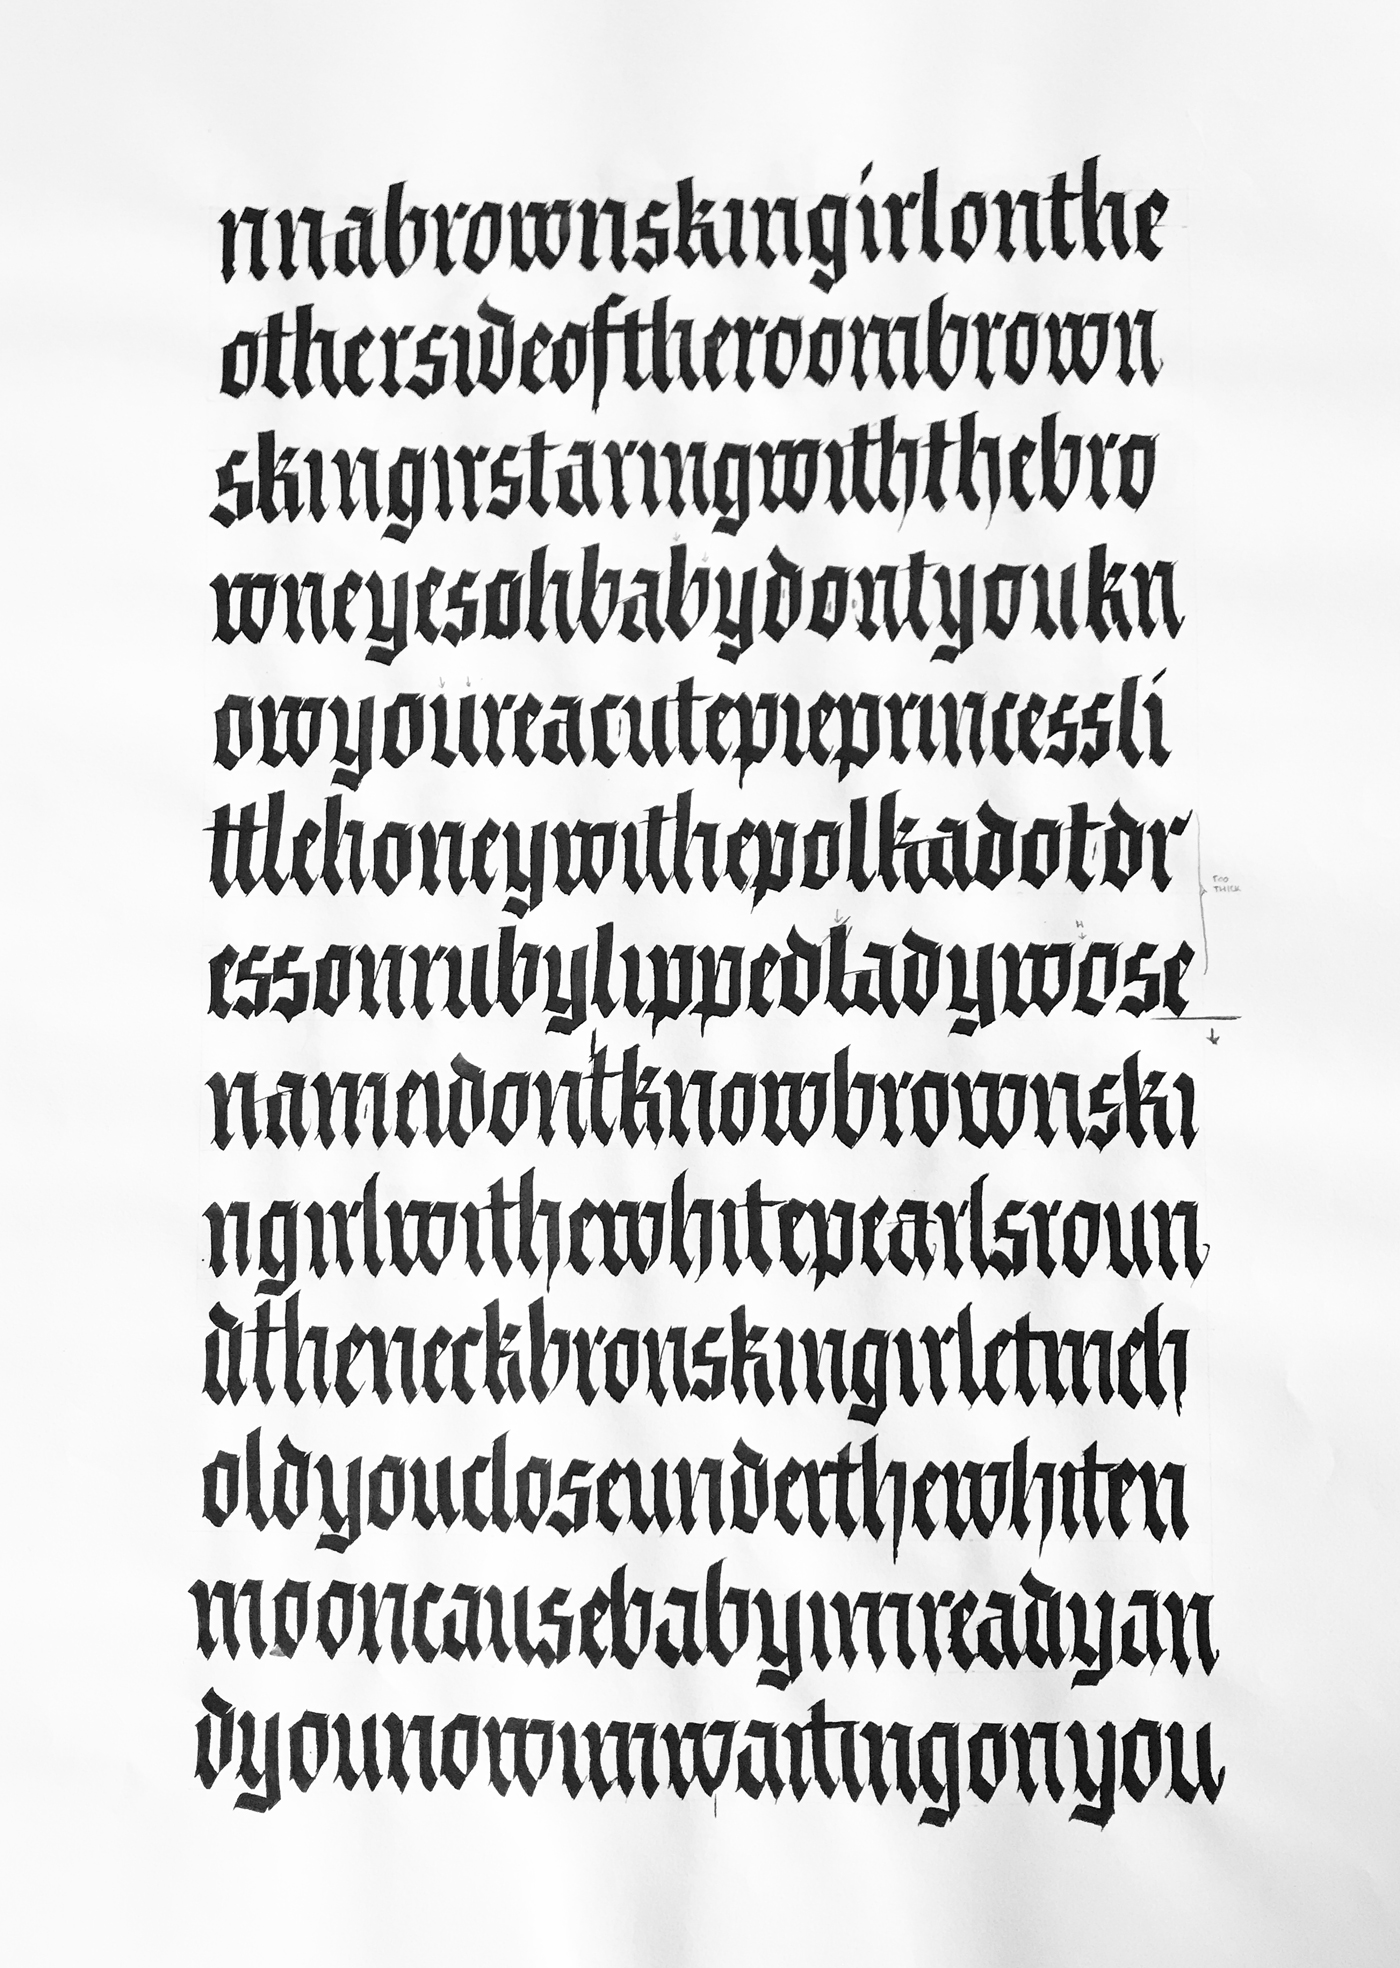 nnabrownskingirlonthe
othersideoftheroombrown
skingirstaringwiththebro
wneyesohbabydontyoukn
owyoureacutepieprincessli
ttlehoneywithepolkadotdr
TOO
THICK
essonrubylippedladywose
H
nameidontknowbrownski
ngirlwithewhitepearlsroun
dtheneckbronskingirletmeh
oldyoucloseunderthewhiten
mooncausebabyimreadyan
dyounowimwaitingonyou